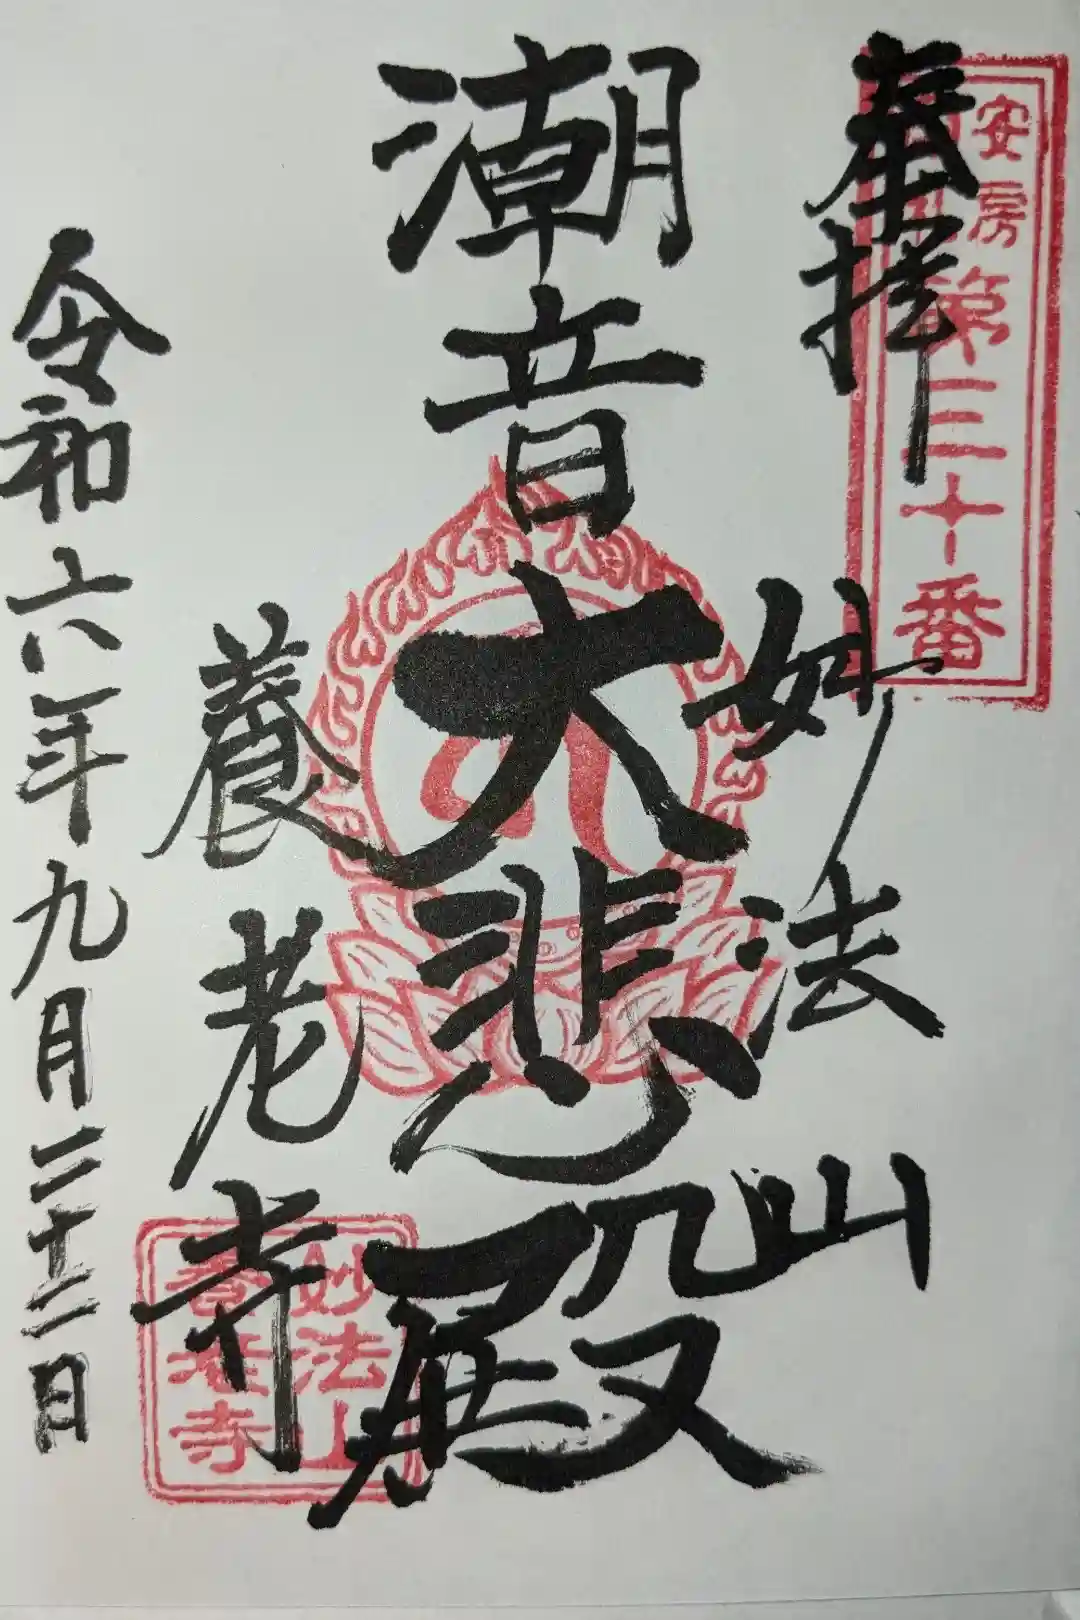 奉拝
安房
第三十番
妙法山
潮音
大悲殿
養老寺
妙法山
養老寺
令和六年九月二十二日